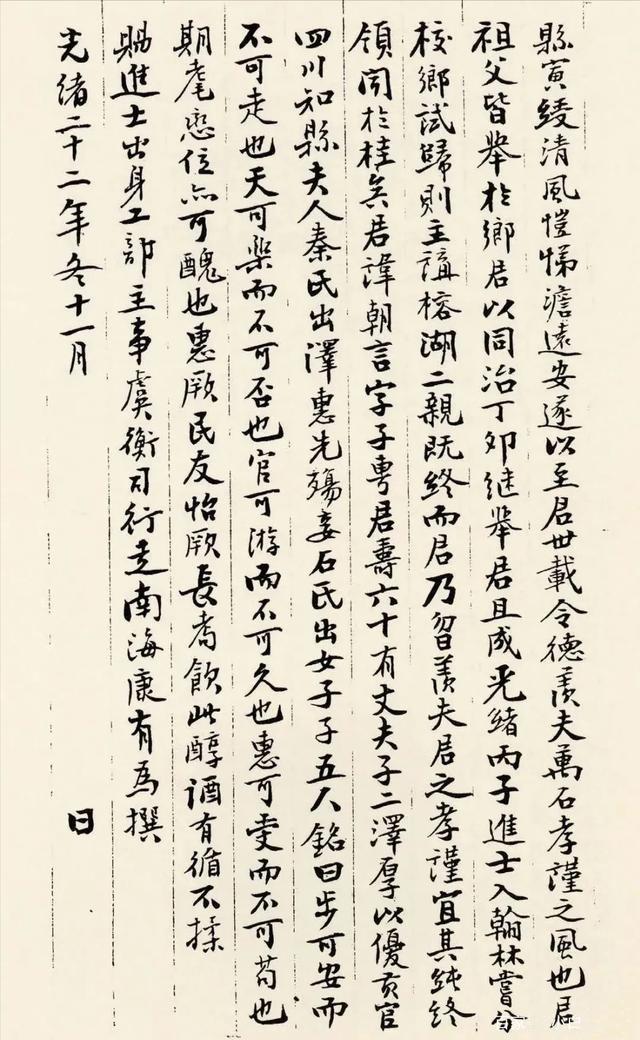 縣寅綾清風愷悌澹遠安遂以至君世載令德羨夫萬石孝謹之風也君
祖父皆舉於鄉君以同治丁卯繼舉君且成光緒丙子進士入翰林嘗分
校鄉試歸則主講榕湖二親既終而君乃曶羨夫君之孝謹宜其純終
領聞於桂矣君諱朝言字子尃君壽六十有丈夫子二澤厚以優貢官
四川知縣夫人秦氏出澤惠先殤妾石氏出女子子五人銘曰步可安而
不可走也天可樂而不可否也官可游而不可久也惠可受而不可苟也
期耄戀位亦可醜也惠厥民友怡厥長耇飲此醇酒有循不揉
賜進士出身工部主事虞衡司行走南海康有為撰
光緒二十二年冬十一月 日